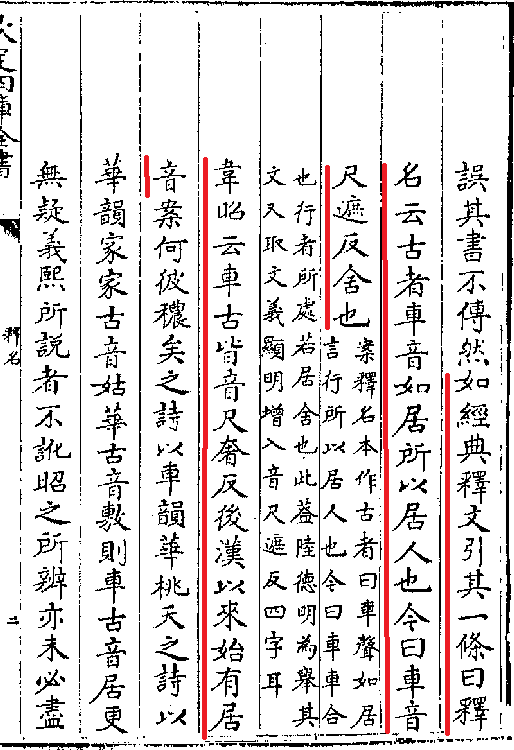 誤其書不傳然如經典釋文引其一條曰釋
名云古者車音如居所以居人也今曰車音
尺遮反舍也
案釋名本作古者曰車聲如居
言行所以居人也今曰車車舍
也行者所處若居舍也此葢陸德明為舉其
文又取文義顯明增入音尺遮反四字耳
韋昭云車古皆音尺奢反後漢以來始有居
音案何彼穠矣之詩以車韻華桃夭之詩以
華韻家家古音姑華古音敷則車古音居更
無疑義熙所說者不訛昭之所辨亦未必盡
欽定四庫全書
釋名
二